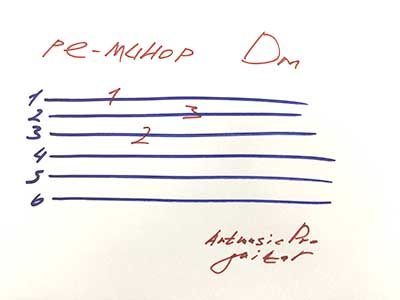 ре-минор Dm
1 1
2 3
3 2
4
5
6
ArtmusicPro
guitar